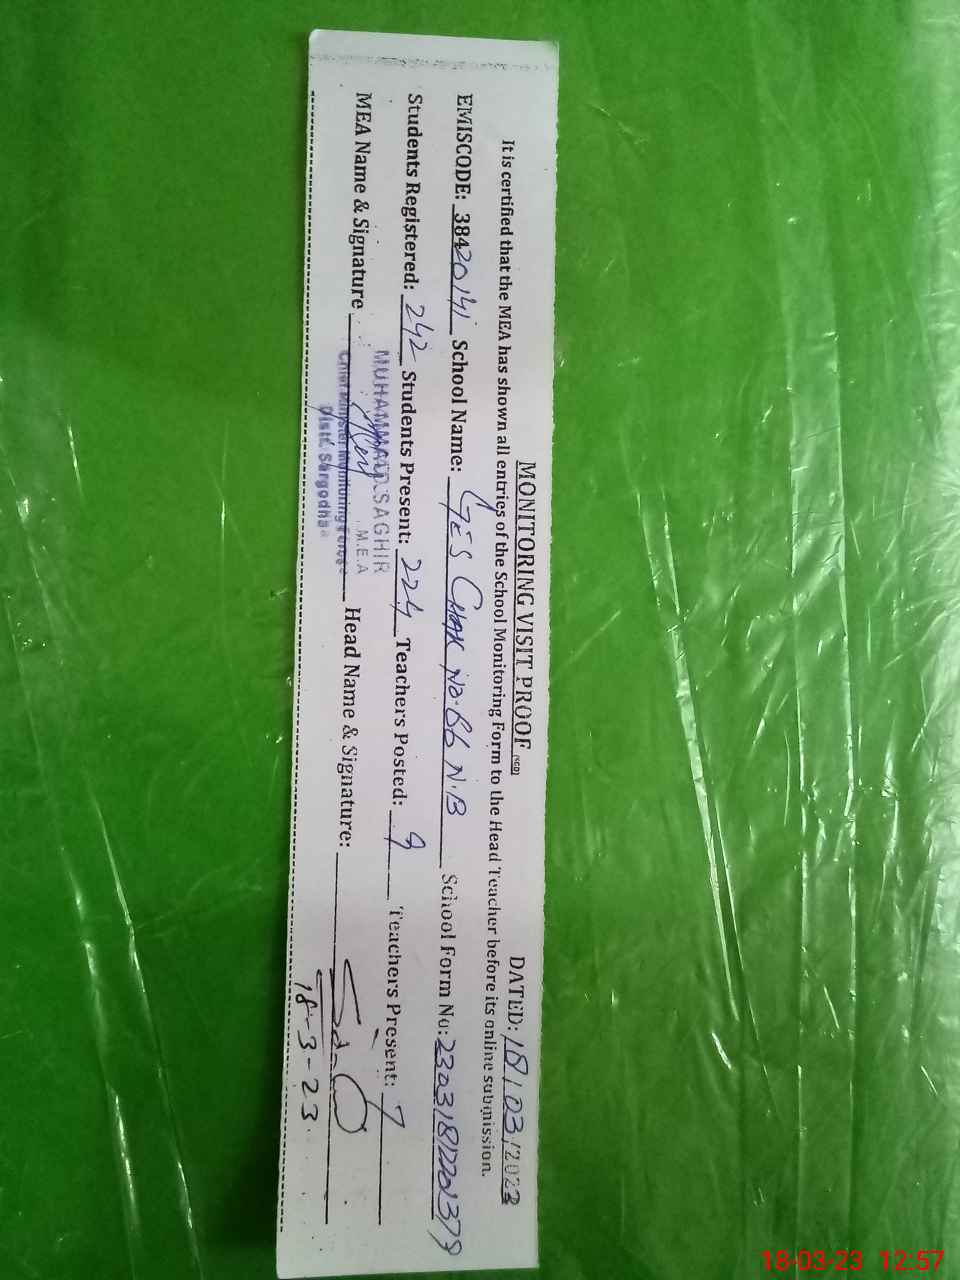 MONITORING VISIT PROOF (SED) DATED: 18/03/2023
It is certified that the MEA has shown all entries of the School Monitoring Form to the Head Teacher before its online submission.
EMISCODE: 38420141 School Name: GES CHAK NO.66 N.B School Form No:
Students Registered: 242 Students Present: 224 Teachers Posted: 9 Teachers Present: 7
MEA Name & Signature Head Name & Signature:
MUHAMMAD SAGHIR
M.E.A
Chief Minister Monitoring Force
Distt. Sargodha
18-3-23
18-03-23 12:57